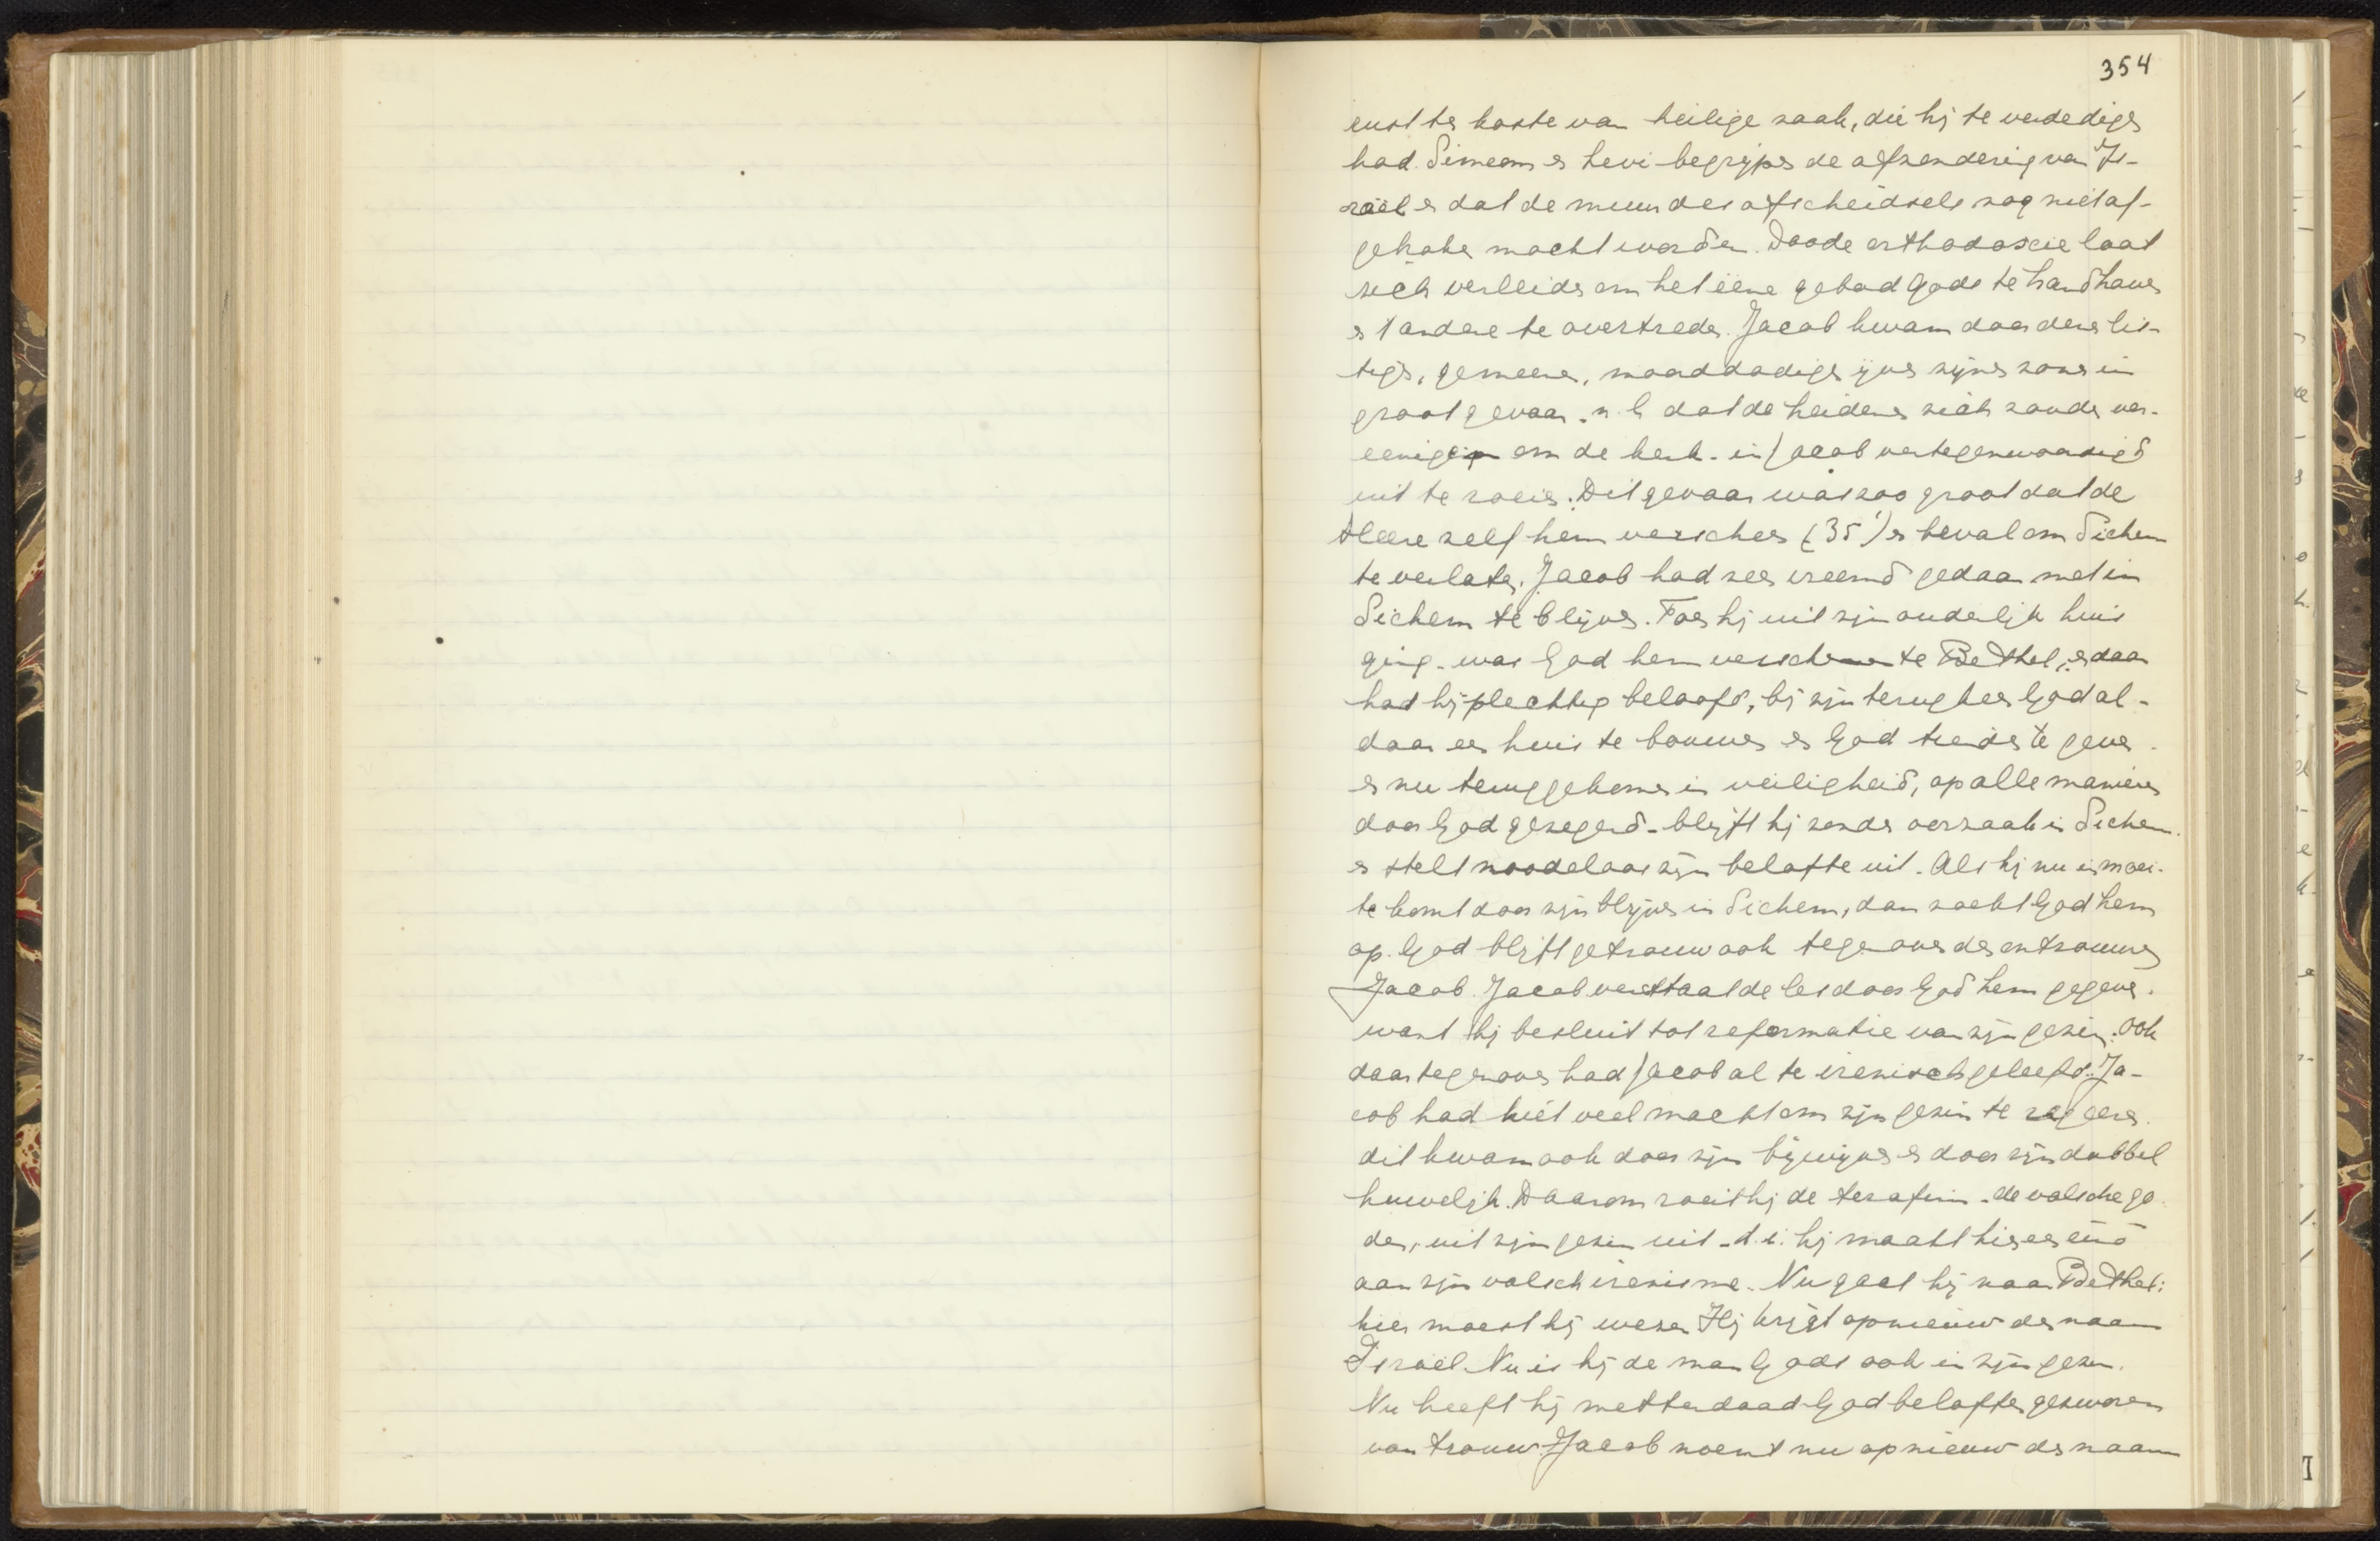 354
rust ten koste van heilige zaak, die hij te verdedigen
had. Simeon en Levi begrijpen de afzondering van Is-
raël en dat de muur des afscheidsels nog niet af-
gebroken mocht worden. Doode orthodoxie laat
zich verleiden om het eene gebod Gods te handhaven
en 't andere te overtreden. Jacob kwam door deze lis-
tige, gemeene, moorddadige ijver zijner zonen in
groot gevaar. n.l. dat de heidenen zich zouden ver-
eenigen om de kerk - in Jacob vertegenwoordigd
uit te roeien. Dit gevaar was zoo groot dat de
Heere zelf hem verscheen (35¹) en beval om Sichem
te verlaten. Jacob had zeer vreemd gedaan met in
Sichem te blijven. Toen hij uit zijn ouderlijk huis
ging - was God hem verschenen te Bethel; en daar
had hij plechtig beloofd, bij zijn terugkeer God al-
daar een huis te bouwen en God tienden te geven.
en nu teruggekomen in veiligheid, op alle manieren
door God gezegend - blijft hij zonder oorzaak in Sichem
en stelt noodeloos zijn belofte uit. Als hij nu in moei-
te komt door zijn blijven in Sichem, dan zoekt God hem
op. God blijft getrouw ook tegenover den ontrouwen
Jacob. Jacob verstaat de les door God hem gegeven.
want hij besluit tot reformatie van zijn gezin. Ook
daartegenover had Jacob al te irenisch geleefd. Ja-
cob had niet veel macht om zijn gezin te regeeren.
dit kwam ook door zijn bijwijven en door zijn dubbel
huwelijk. Daarom roeit hij de terafim - de valsche go-
den, uit zijn gezin uit - d.i. hij maakt hier een eind
aan zijn valsch irenisme. Nu gaat hij naar Bethel:
hier moest hij wezen. Hij krijgt opnieuw den naam
Israël. Nu is hij de man Gods ook in zijn gezin.
Nu heeft hij metterdaad God beloften gezworen
van trouw. Jacob noemt nu opnieuw den naam